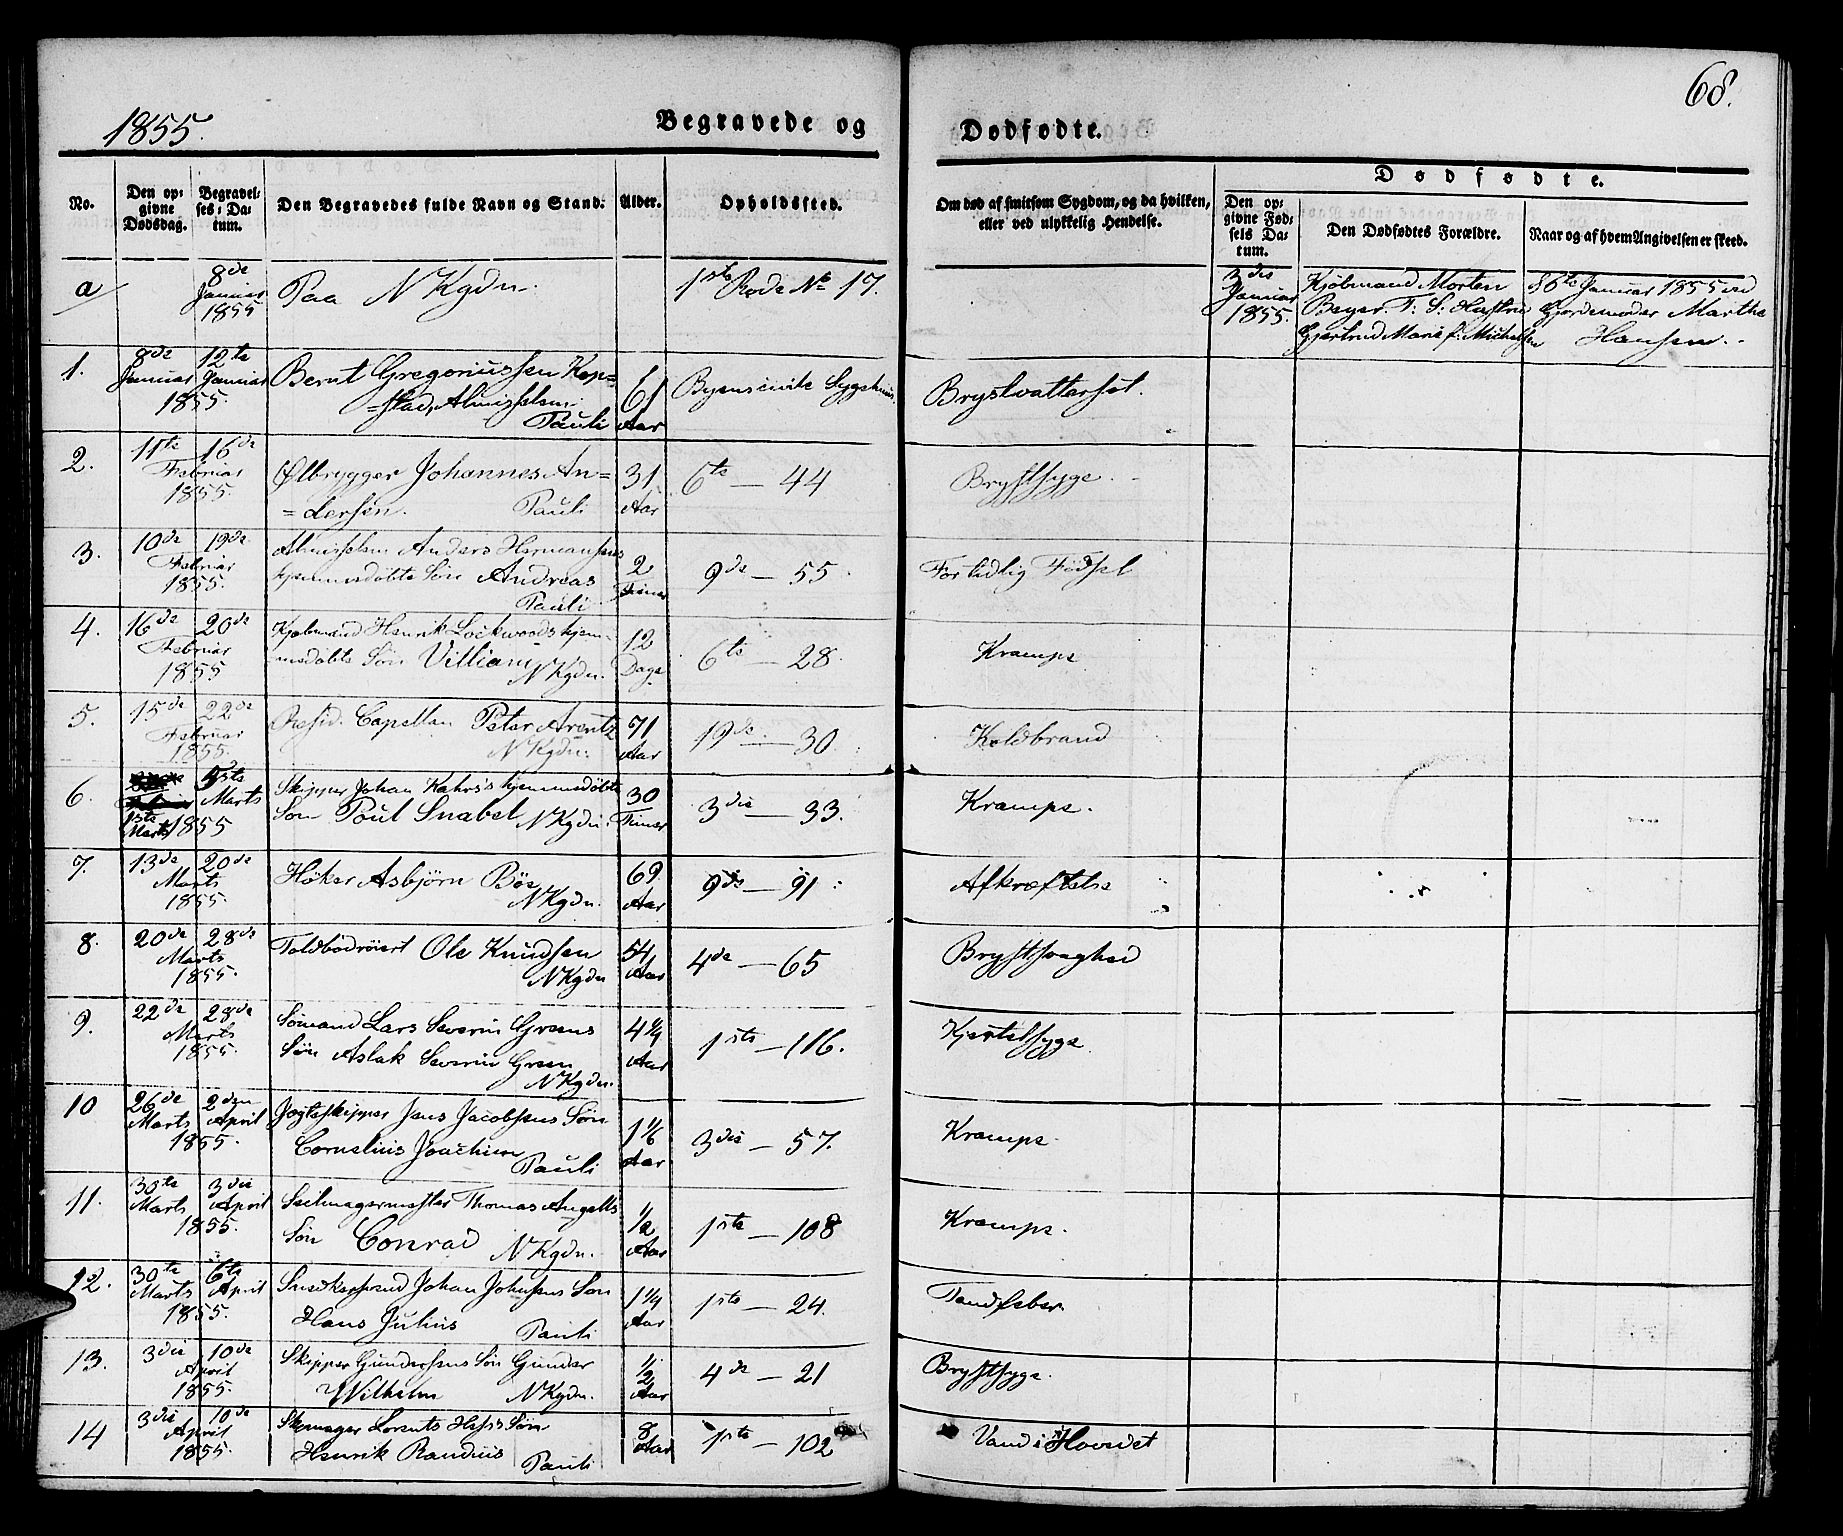 68.
1855. Begravede og Dødfødte.
No.
Den opgivne Dødsdag.
Begravelses-Datum.
Den Begravedes fulde Navn og Stand.
Alder.
Opholdssted.
Om død af smitsom Sygdom, og da hvilken, eller ved ulykkelig Hendelse.
Dødfødte.
Den opgivne Fødsels Datum.
Den Dødfødtes Forældre.
Naar og af hvem Angivelsen er skeed.
a/ 8de Januar 1855 Paa NKgdn. 1ste Rode No 17. 3die Januar 1855. Kjøbmand Morten Beyer. T. S. Hustru Gjertrud Marie f. Michelsen 6te Januar 1855 ved Gjordemoder Marthe Hansen.
1. 8de Januar 12te Januar 1855 Bernt Gregoriussen Kopstad, Almisselem. Pauli 61 Aar Byens civile Sygehuus. Brystvattersot.
2. 11te 16de Februar 1855. Ølbrygger Johannes Andersen. Pauli 31 Aar 6te — 44 Brystsyge.
3. 10de 19de Februar 1855. Almisselem Anders Hermansens hjemmedøbte Søn Andreas Pauli 2 Timer 9de — 55. For tidlig Fødsel
4. 16de 20de Februar 1855 Kjøbmand Henrik Lockwoods hjemmedøbte Søn Villiam NKgdn. 12 Dage 6te — 28. Krampe
5. 15de 22de Februar 1855. Resid. Capellan Peter Arentz NKgdn. 71 Aar 19de — 30. Koldbrand
6. 1ste Marts 5te Marts 1855 Skipper Johan Kahrs's hjemmedøbte Søn Poul Snabel NKgdn. 30 Timer 3die — 33. Krampe.
7. 13de 20de Marts 1855. Høker Asbjørn Bøe NKgdn. 69 Aar 9de — 91. Afkræftelse
8. 20de 28de Marts 1855. Toldbodrøiert Ole Knudsen NKgdn 54 Aar 4de — 65 Brystsvaghed
9. 22de 28de Marts 1855. Sømand Lars Severin Greens Søn Aslak Severin Green NKgdn. 4¼ Aar 1ste — 116. Kjertelsyge
10 26de Marts 2den April 1855. Jagteskipper Jens Jacobsens Søn Cornelius Joachim Pauli 1 1/6 Aar 3die — 57. Krampe.
11. 30te Marts 3die April 1855. Seilmagermester Thomas Angells Søn Conrad NKgdn. ½ Aar 1ste — 108 Krampe.
12. 30te Marts 6te April 1855. Smedkersvend Johan Johnsens Søn Hans Julius Pauli 1¼ Aar 1ste — 24. Tandfeber.
13. 3die 10de April 1855. Skipper Gundersens Søn Gunder Wilhelm NKgdn. ½ Aar 4de — 21 Brystsyge.
14 3die 10de April 1855. Skomager Lorents Hess's Søn Henrik Randuus Pauli 8 Aar 1ste — 102 Vand i Hovedet